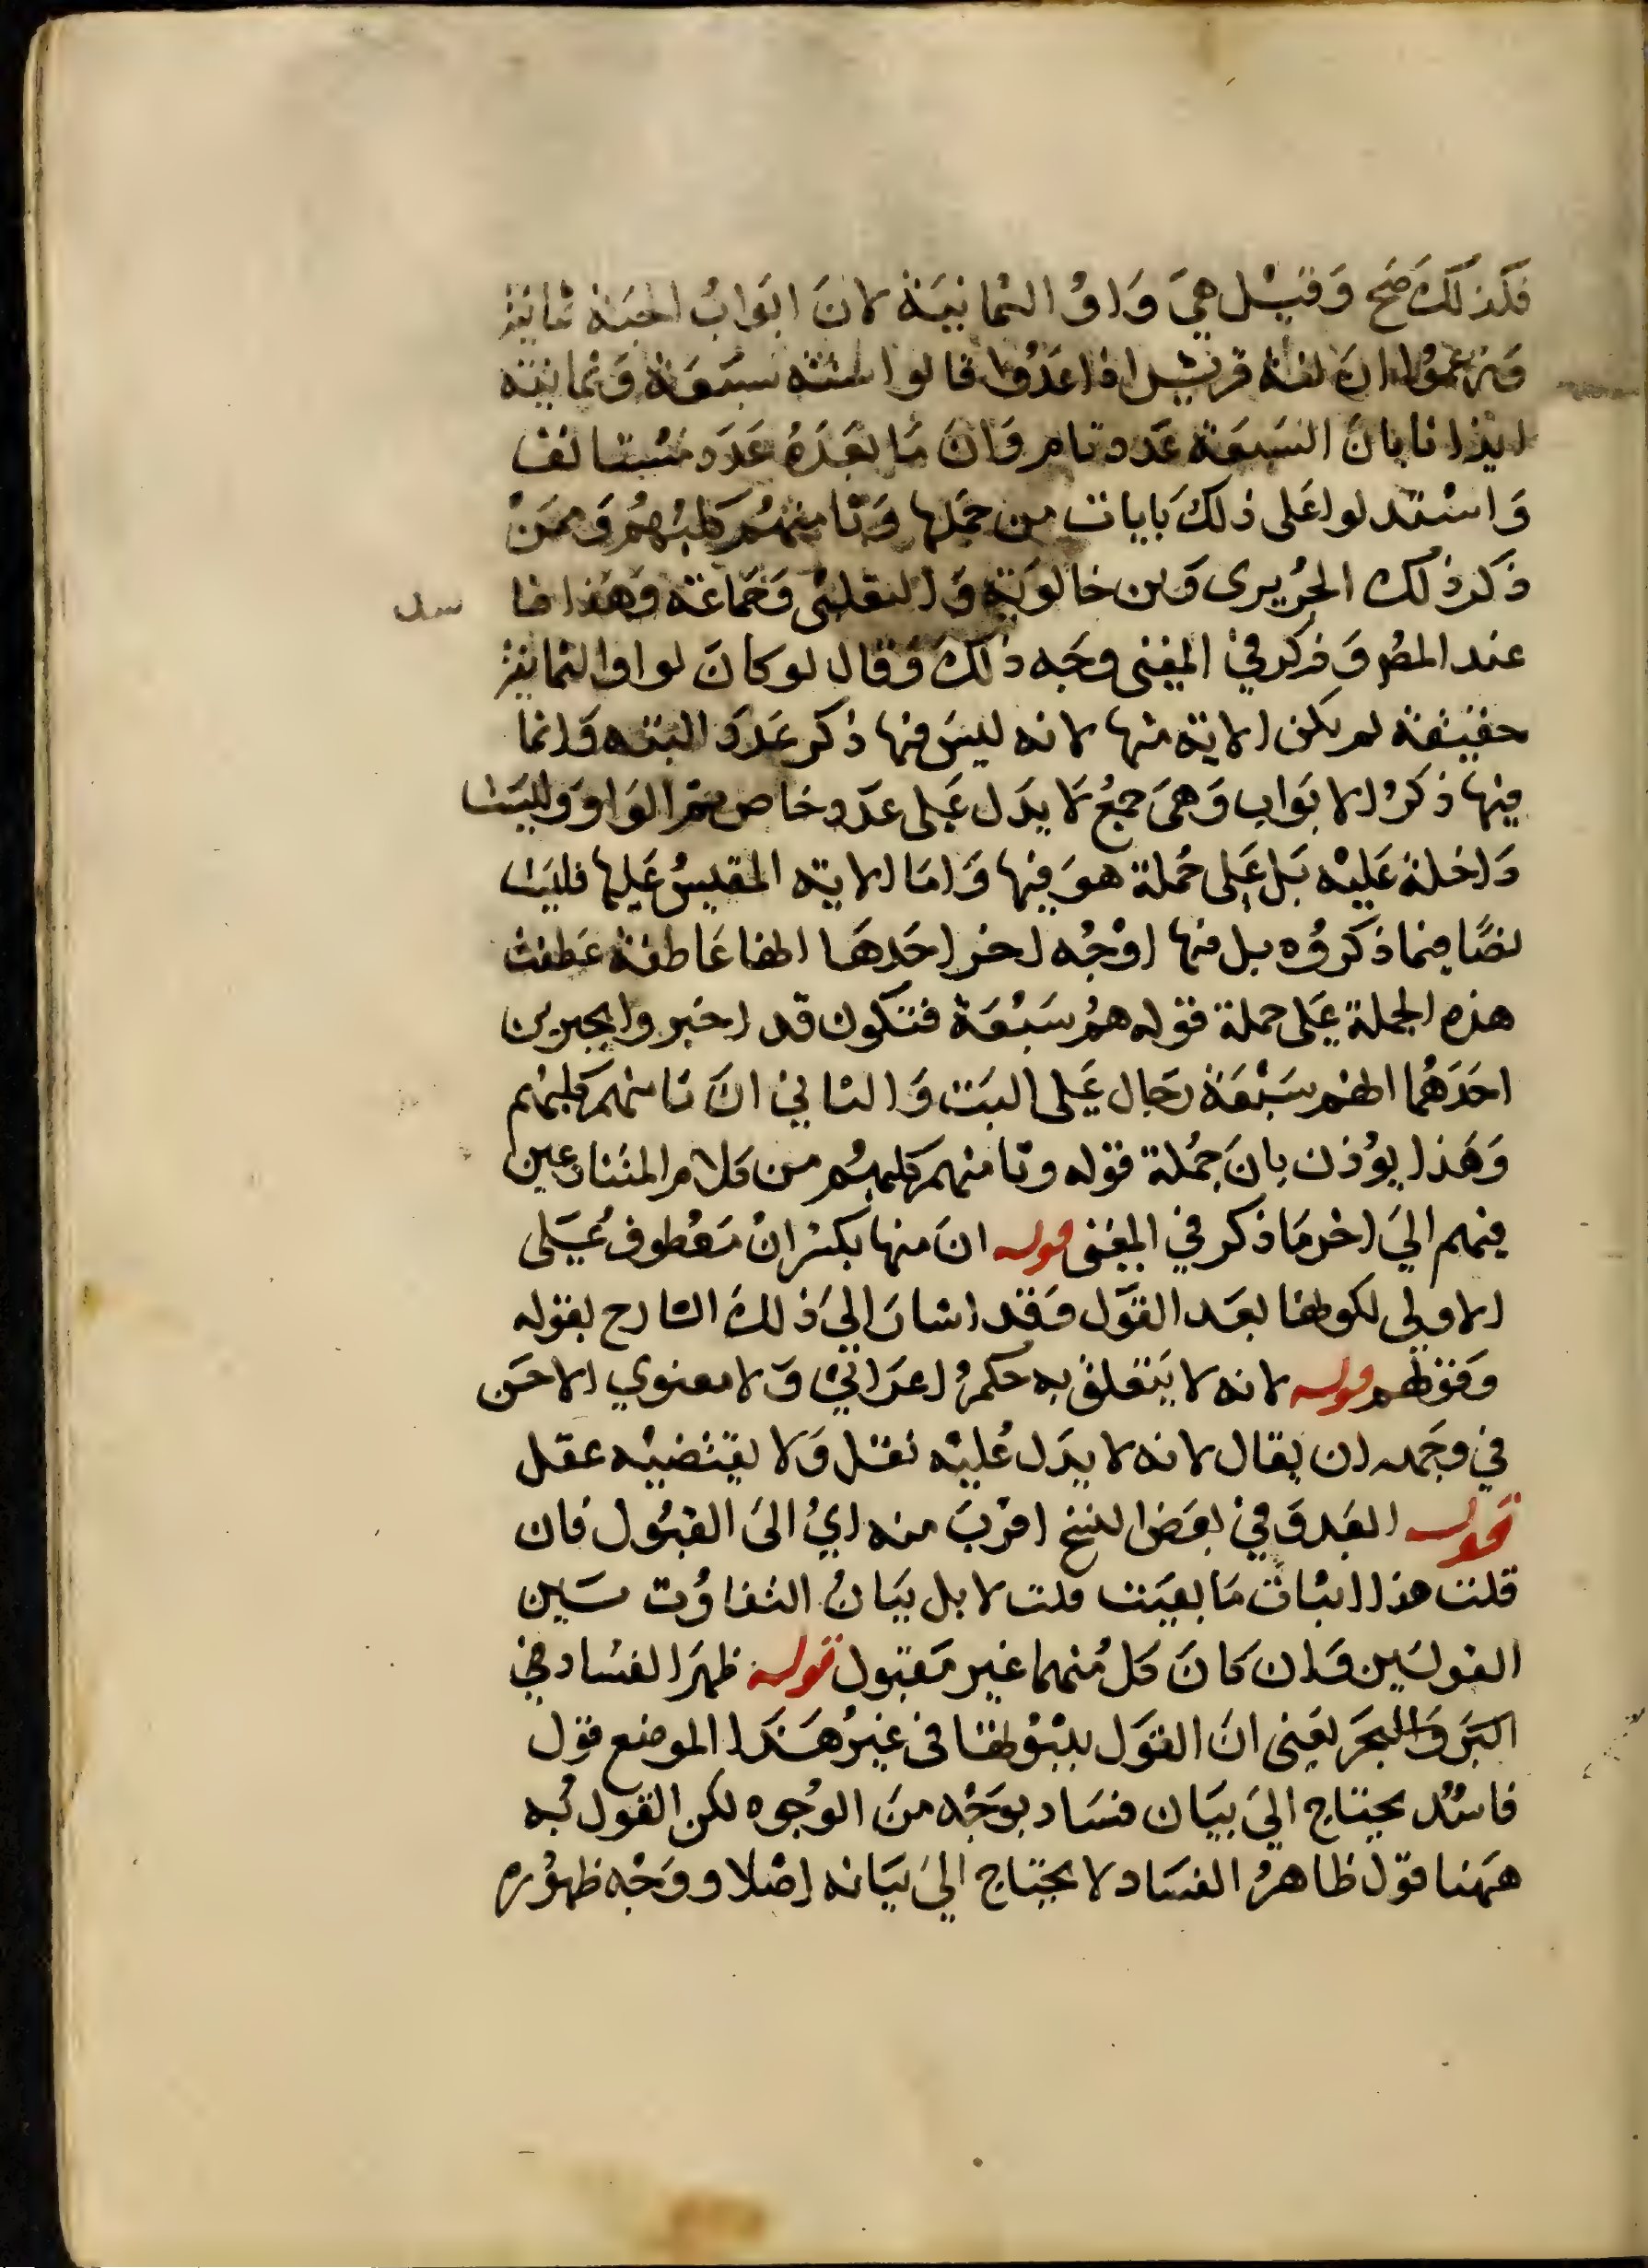 فلذلك صح وقيل هي واو الثمانية لان ابواب الجنة ثمانية
وزعموا ان لغة قريش اذا عدوا قالوا ستة سبعة وثمانية
ايذانا بان السبعة عدد تام وان ما بعده عدد مستانف
واستدلوا على ذلك بايات من جملها وثامنهم كلبهم وممن
ذكر ذلك الحريرى وبن خالوية والثعلبى وجماعة وهذا
عند المصر وذكر في المغنى وجه ذلك وقال لو كان لواو الثمانية
حقيقة لم يكن الاية منها لانه ليس فيها ذكر عدد البته وانما
فيها ذكر الابواب وهى جمع لا يدل على عدد خاص ثم الواو وليست
داخلة عليه بل على جملة هو فيها واما الاية المقيس عليها فليست
نصا فيما ذكروه بل فيها اوجه اخر احدها انها عاطفة عطفت
هذه الجملة على جملة قوله هم سبعة فتكون قد اخبروا بخبرين
احدهما انهم سبعة رجال على البت والثاني ان ثامنهم كلبهم
وهذا يوذن بان جملة قوله وثامنهم كلبهم من كلام المتنازعين
فيهم الي اخر ما ذكر في المغنى قوله ان منها بكسر ان معطوف على
الاولي لكونها بعد القول وقد اشار الي ذلك الشارح بقوله
وقولهم قوله لانه لا يتعلق به حكم اعرابي ولا معنوي الاحسن
في وجهه ان يقال لانه لا يدل عليه نقل ولا يقتضيه عقل
قوله ابعد وفي بعض النسخ اقرب منه اي الى القبول فان
قلت هذا اثبات ما بعيت قلت لا بل بيان التفاوت بين
القولين وان كان كل منهما غير مقبول قوله ظهر الفساد في
البر والبحر يعنى ان القول بثبوتها فى غير هذا الموضع قول
فاسد يحتاج الي بيان فساد بوجه من الوجوه لكن القول به
ههنا قول ظاهر الفساد لا يحتاج الي بيانه اصلا ووجه ظهوره